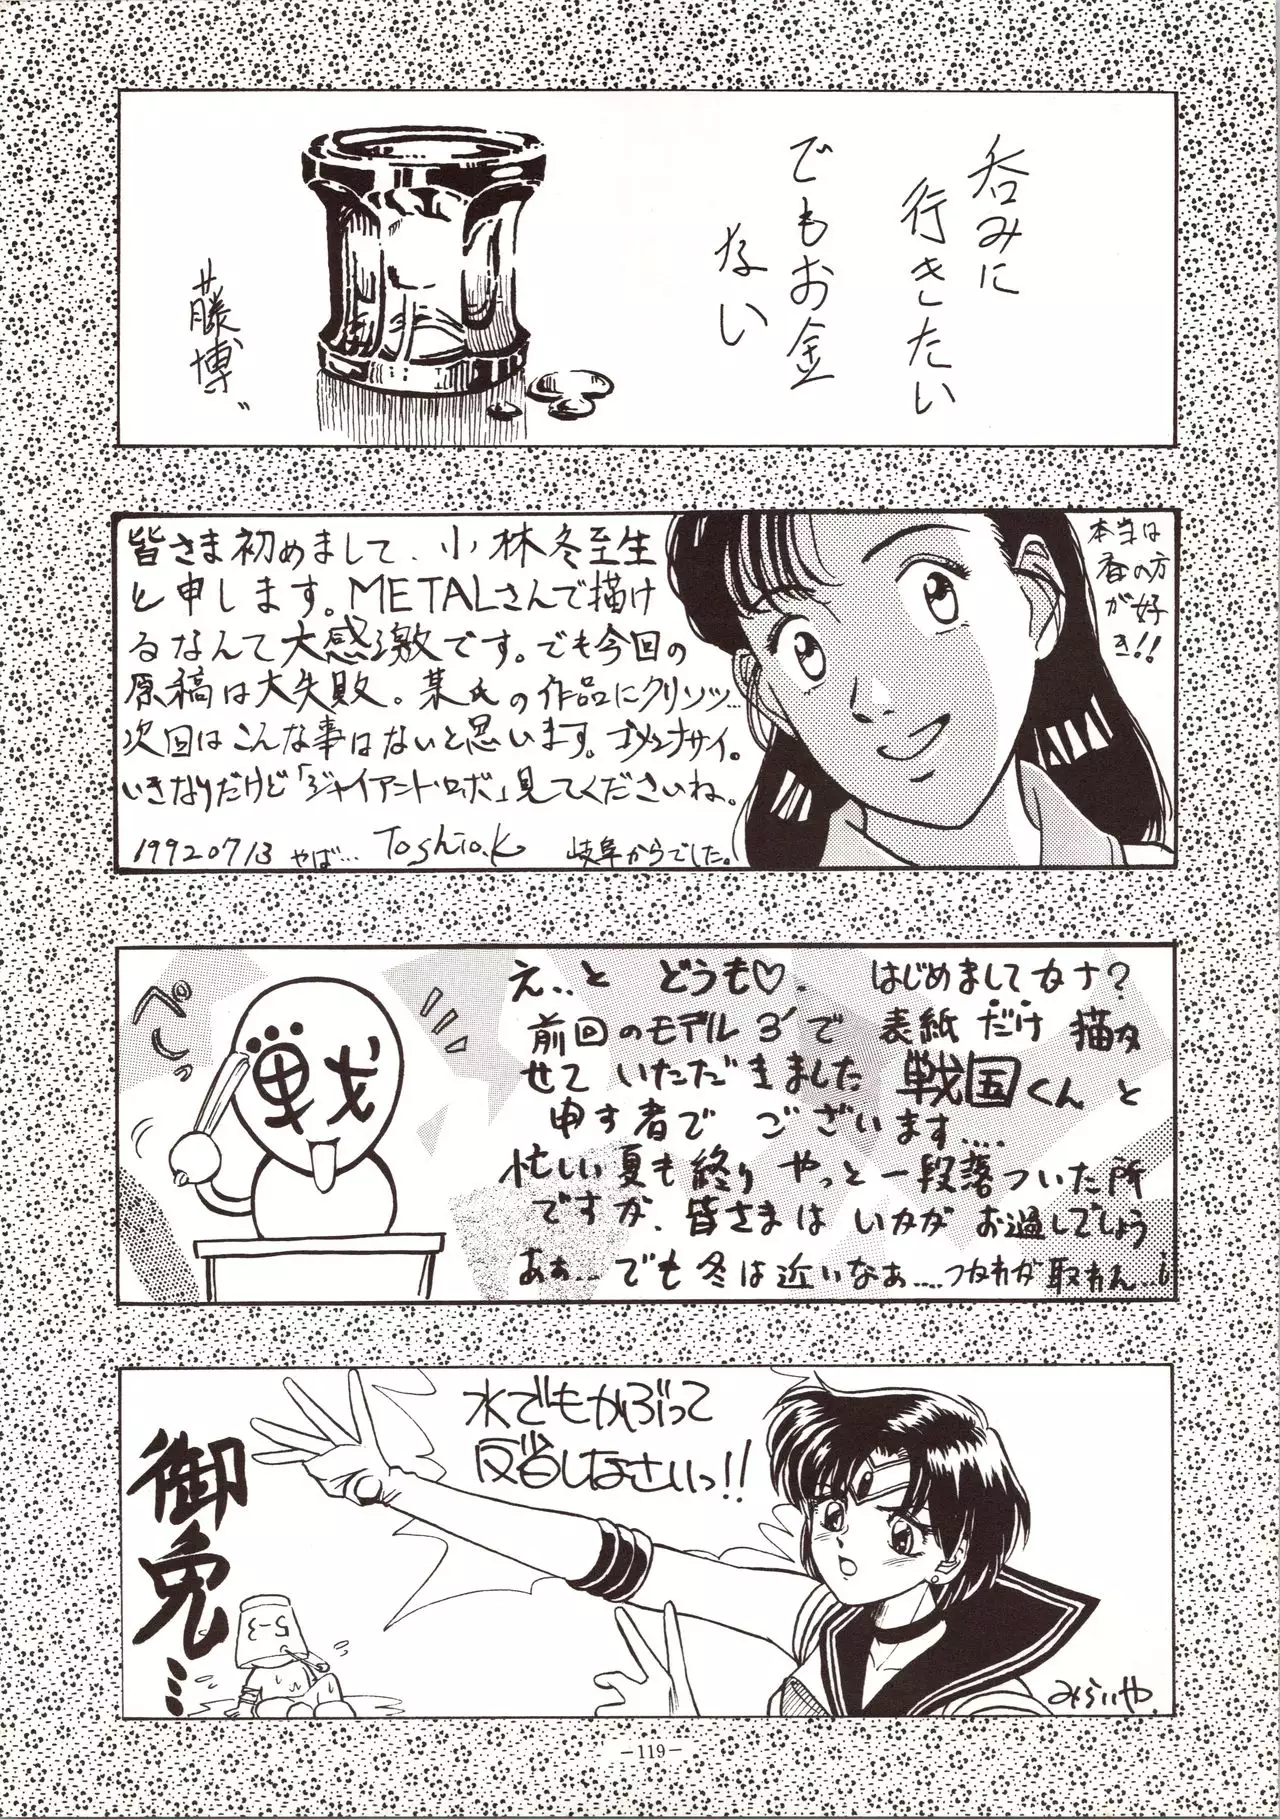 呑みに
行きたい
でもお金
ない
藤博〃
皆さま初めまして、小林冬至生
と申します。METALさんで描け
るなんて大感激です。でも今回の
原稿は大失敗。某氏の作品にクリソツ…
次回はこんな事はないと思います。ゴメンナサイ。
いきなりだけど「ジャイアント・ロボ」見てくださいね。
19920713 やば… Toshio.K 岐阜からでした。
本当は
香の方
が好
き!!
ぺしっ
戦
え..と どうも♡. はじめましてカナ?
前回のモデル3'で 表紙だけ描か
せていただきました戦国くんと
申す者でございます....
忙しい夏も終り やっと一段落ついた所
ですが、皆さまは いかが お過しでしょう
あぁ...でも冬は近いなぁ....つかれが取れん...
水でもかぶって
反省しなさいっ!!
御免…
5-3
みらいや
－119－